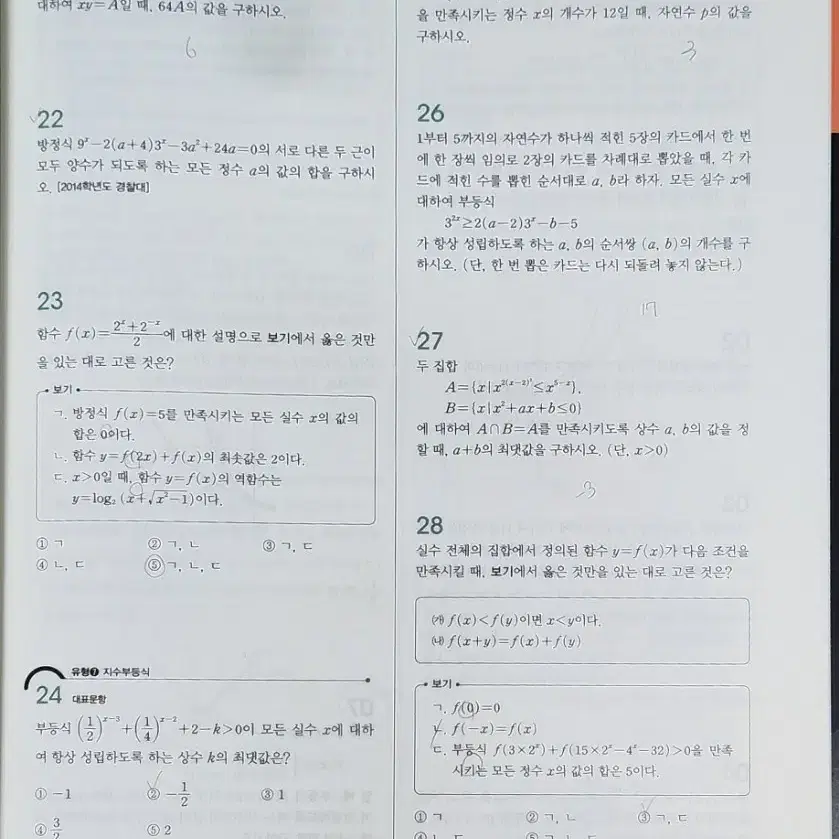 대하여 xy=A일 때, 64A의 값을 구하시오.
6
22
방정식 9ˣ-2(a+4)3ˣ-3a²+24a=0의 서로 다른 두 근이
모두 양수가 되도록 하는 모든 정수 a의 값의 합을 구하시
오. [2014학년도 경찰대]
23
함수 f(x)=(2ˣ+2⁻ˣ)/2에 대한 설명으로 보기에서 옳은 것만
을 있는 대로 고른 것은?
보기
ㄱ. 방정식 f(x)=5를 만족시키는 모든 실수 x의 값의
합은 0이다.
ㄴ. 함수 y=f(2x)+f(x)의 최솟값은 2이다.
ㄷ. x>0일 때, 함수 y=f(x)의 역함수는
y=log₂(x+√(x²-1))이다.
① ㄱ ② ㄱ, ㄴ ③ ㄱ, ㄷ
④ ㄴ, ㄷ ⑤ ㄱ, ㄴ, ㄷ
유형7 지수부등식
24 대표문항
부등식 (1/2)ˣ⁻³+(1/4)ˣ⁻²+2-k>0이 모든 실수 x에 대하
여 항상 성립하도록 하는 상수 k의 최댓값은?
① -1 ② -1/2 ③ 1
④ 3/2 ⑤ 2
을 만족시키는 정수 x의 개수가 12일 때, 자연수 p의 값을
구하시오.
3
26
1부터 5까지의 자연수가 하나씩 적힌 5장의 카드에서 한 번
에 한 장씩 임의로 2장의 카드를 차례대로 뽑았을 때, 각 카
드에 적힌 수를 뽑힌 순서대로 a, b라 하자. 모든 실수 x에
대하여 부등식
3²ˣ≥2(a-2)3ˣ-b-5
가 항상 성립하도록 하는 a, b의 순서쌍 (a, b)의 개수를 구
하시오. (단, 한 번 뽑은 카드는 다시 되돌려 놓지 않는다.)
17
27
두 집합
A={x|x^{2(x-2)²}≤x^{5-x}},
B={x|x²+ax+b≤0}
에 대하여 A∩B=A를 만족시키도록 상수 a, b의 값을 정
할 때, a+b의 최댓값을 구하시오. (단, x>0)
3
28
실수 전체의 집합에서 정의된 함수 y=f(x)가 다음 조건을
만족시킬 때, 보기에서 옳은 것만을 있는 대로 고른 것은?
㈎ f(x)<f(y)이면 x<y이다.
㈏ f(x+y)=f(x)+f(y)
보기
ㄱ. f(0)=0
ㄴ. f(-x)=f(x)
ㄷ. 부등식 f(3×2ˣ)+f(15×2ˣ-4ˣ-32)>0을 만족
시키는 모든 정수 x의 값의 합은 5이다.
① ㄱ ② ㄱ, ㄴ ③ ㄱ, ㄷ
④ ㄴ, ㄷ ⑤ ㄱ, ㄴ, ㄷ